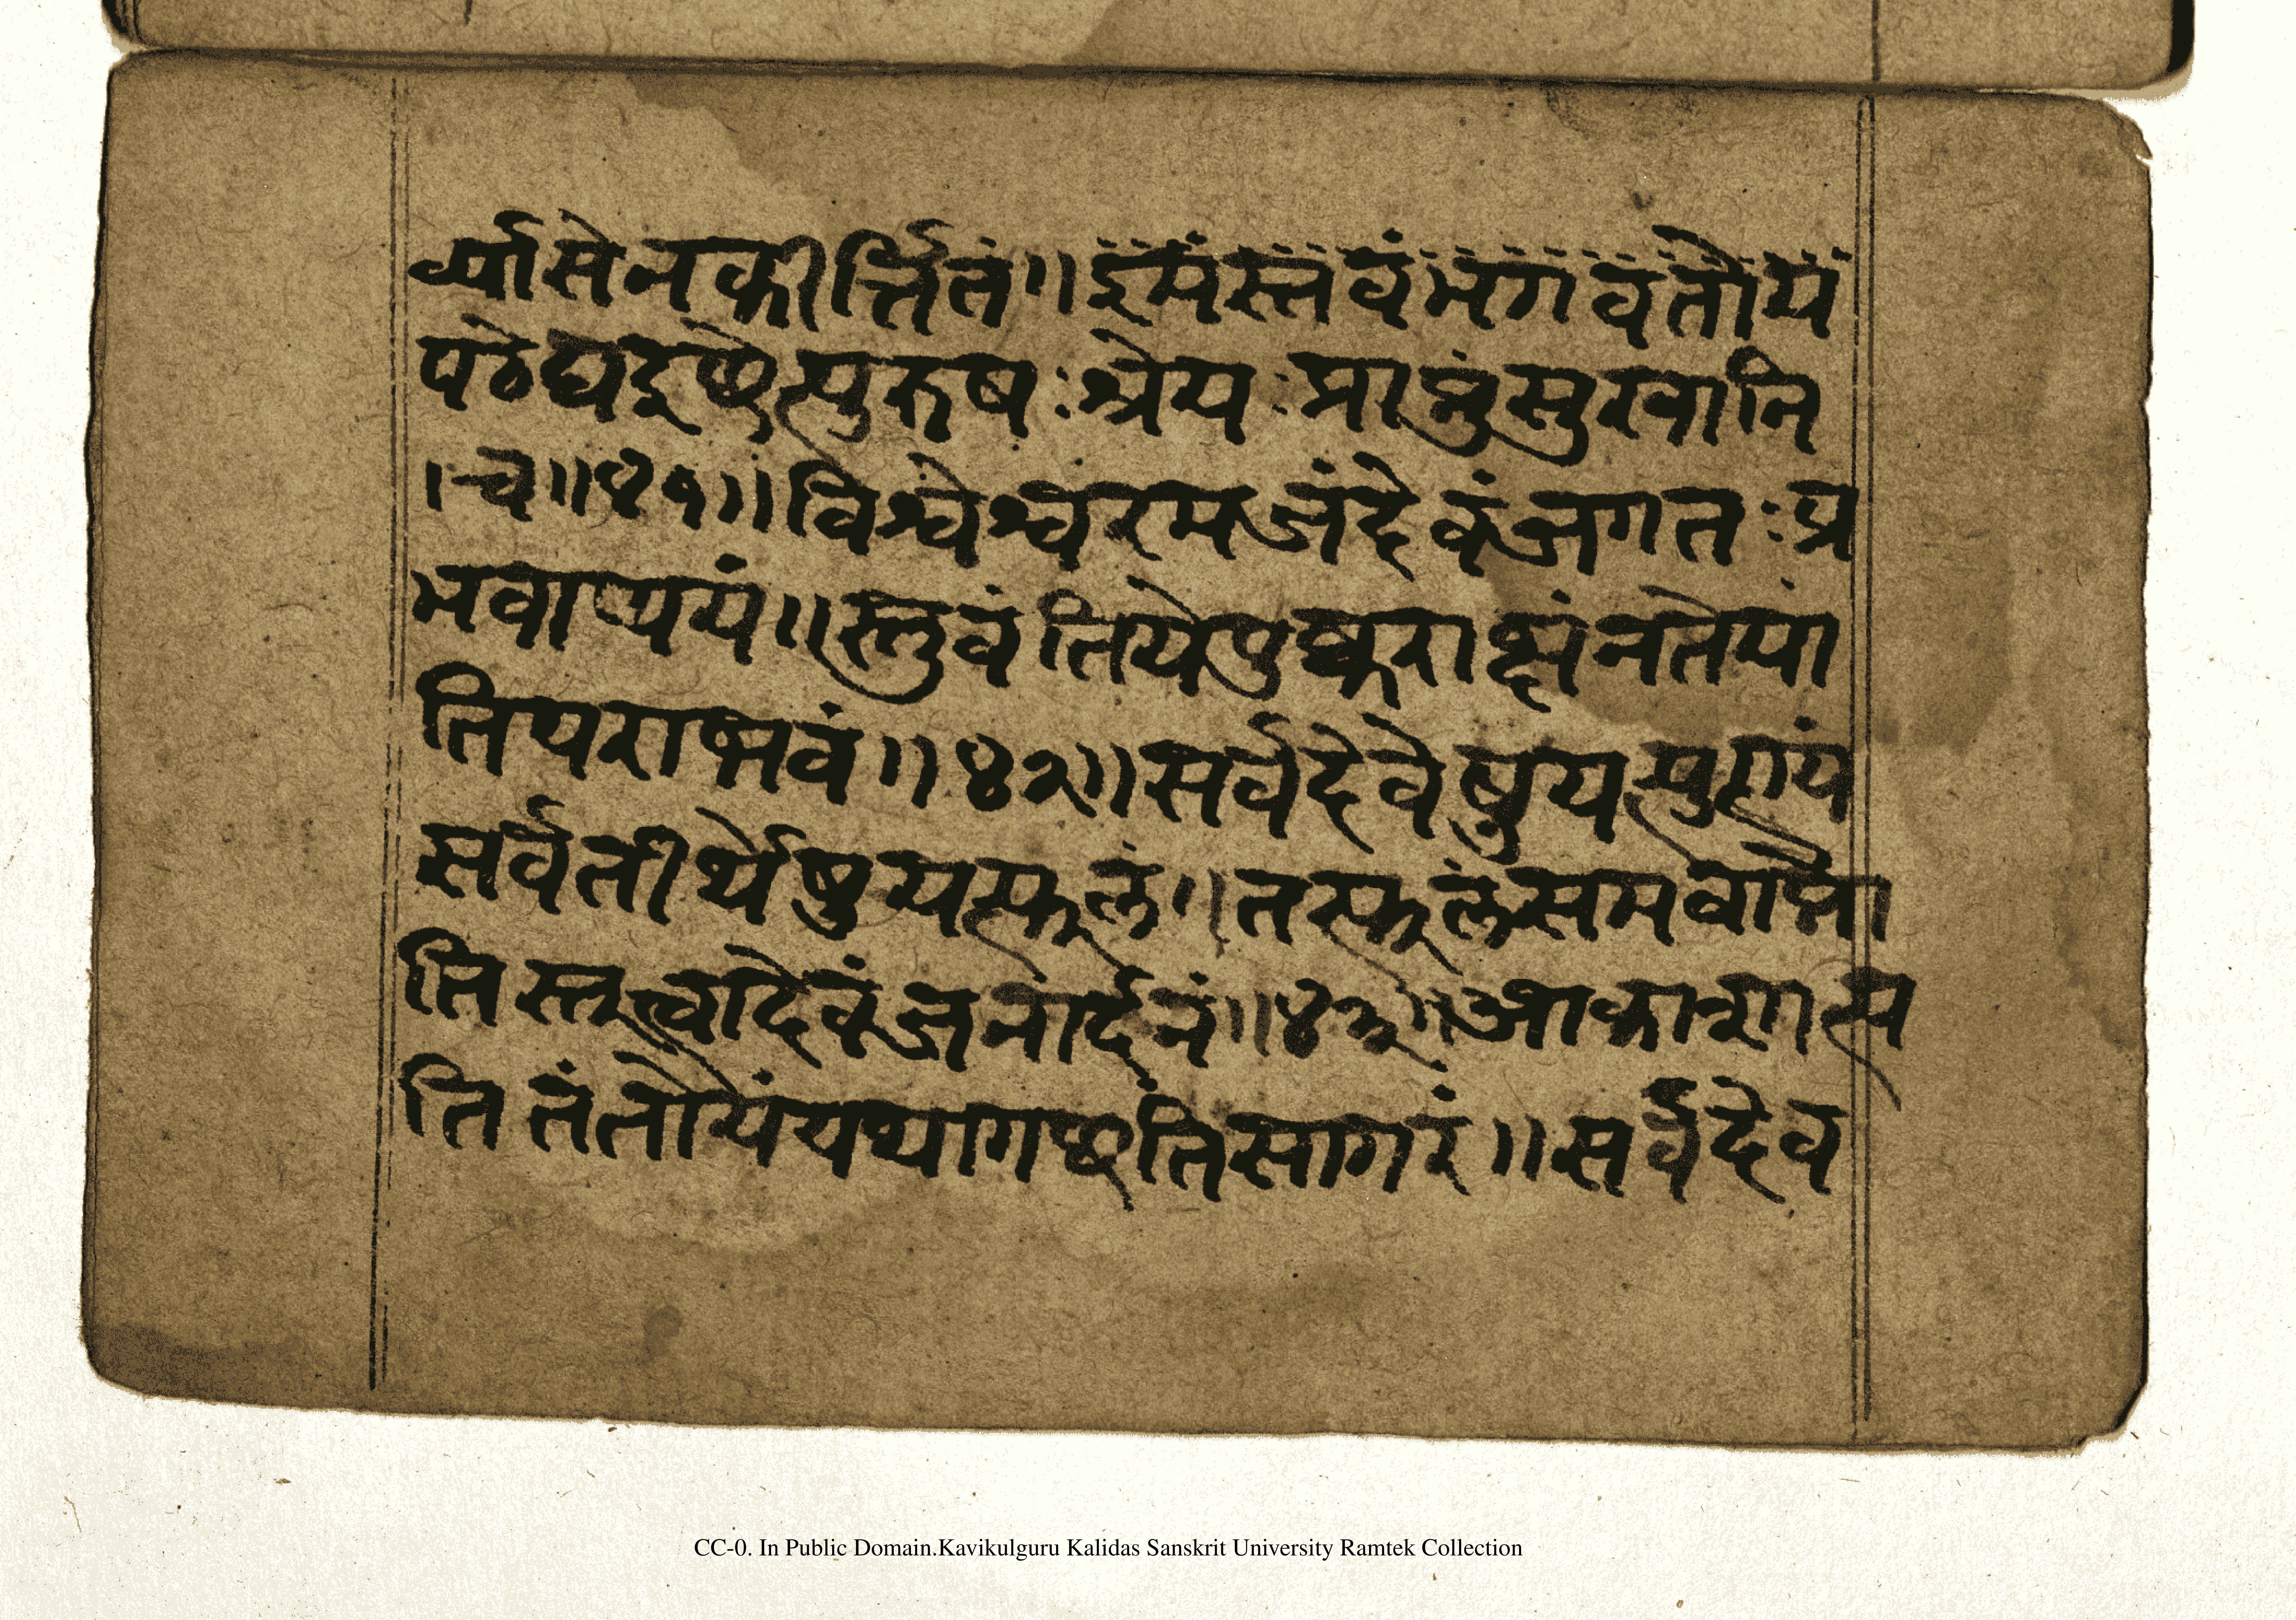 र्व्यासेनकीर्त्तितं॥इमंस्तवंभगवतोय
पठेद्यइछेत्पुरुषःश्रेयःप्राप्तुंसुखानि
।च॥४१॥विश्वेश्वरमजंदेवंजगतःप्र
भवाप्ययं॥स्तुवंतियेपुष्कराक्षंनतेयां
तिपराभवं॥४२॥सर्वदेवेषुयत्पुण्यं
सर्वतीर्थेषुयत्फलं॥तत्फलंसमवाप्नो
तिस्तुत्वादेवंजनार्दनं॥४३॥आकाशात्प
तितंतोयंयथागछतिसागरं॥सर्वदेव
CC-0. In Public Domain.Kavikulguru Kalidas Sanskrit University Ramtek Collection